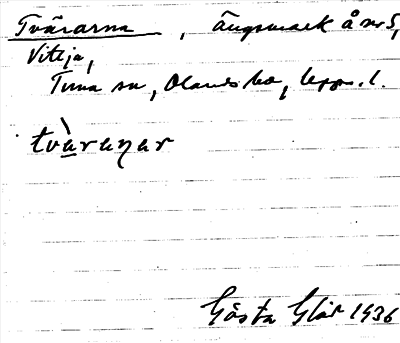 Tvärarna , Ängsmark å nr 5,
Vitsja,
Tuna sn, Olands hd, Upps. l.
tvàraṇar
Gösta Glår 1936